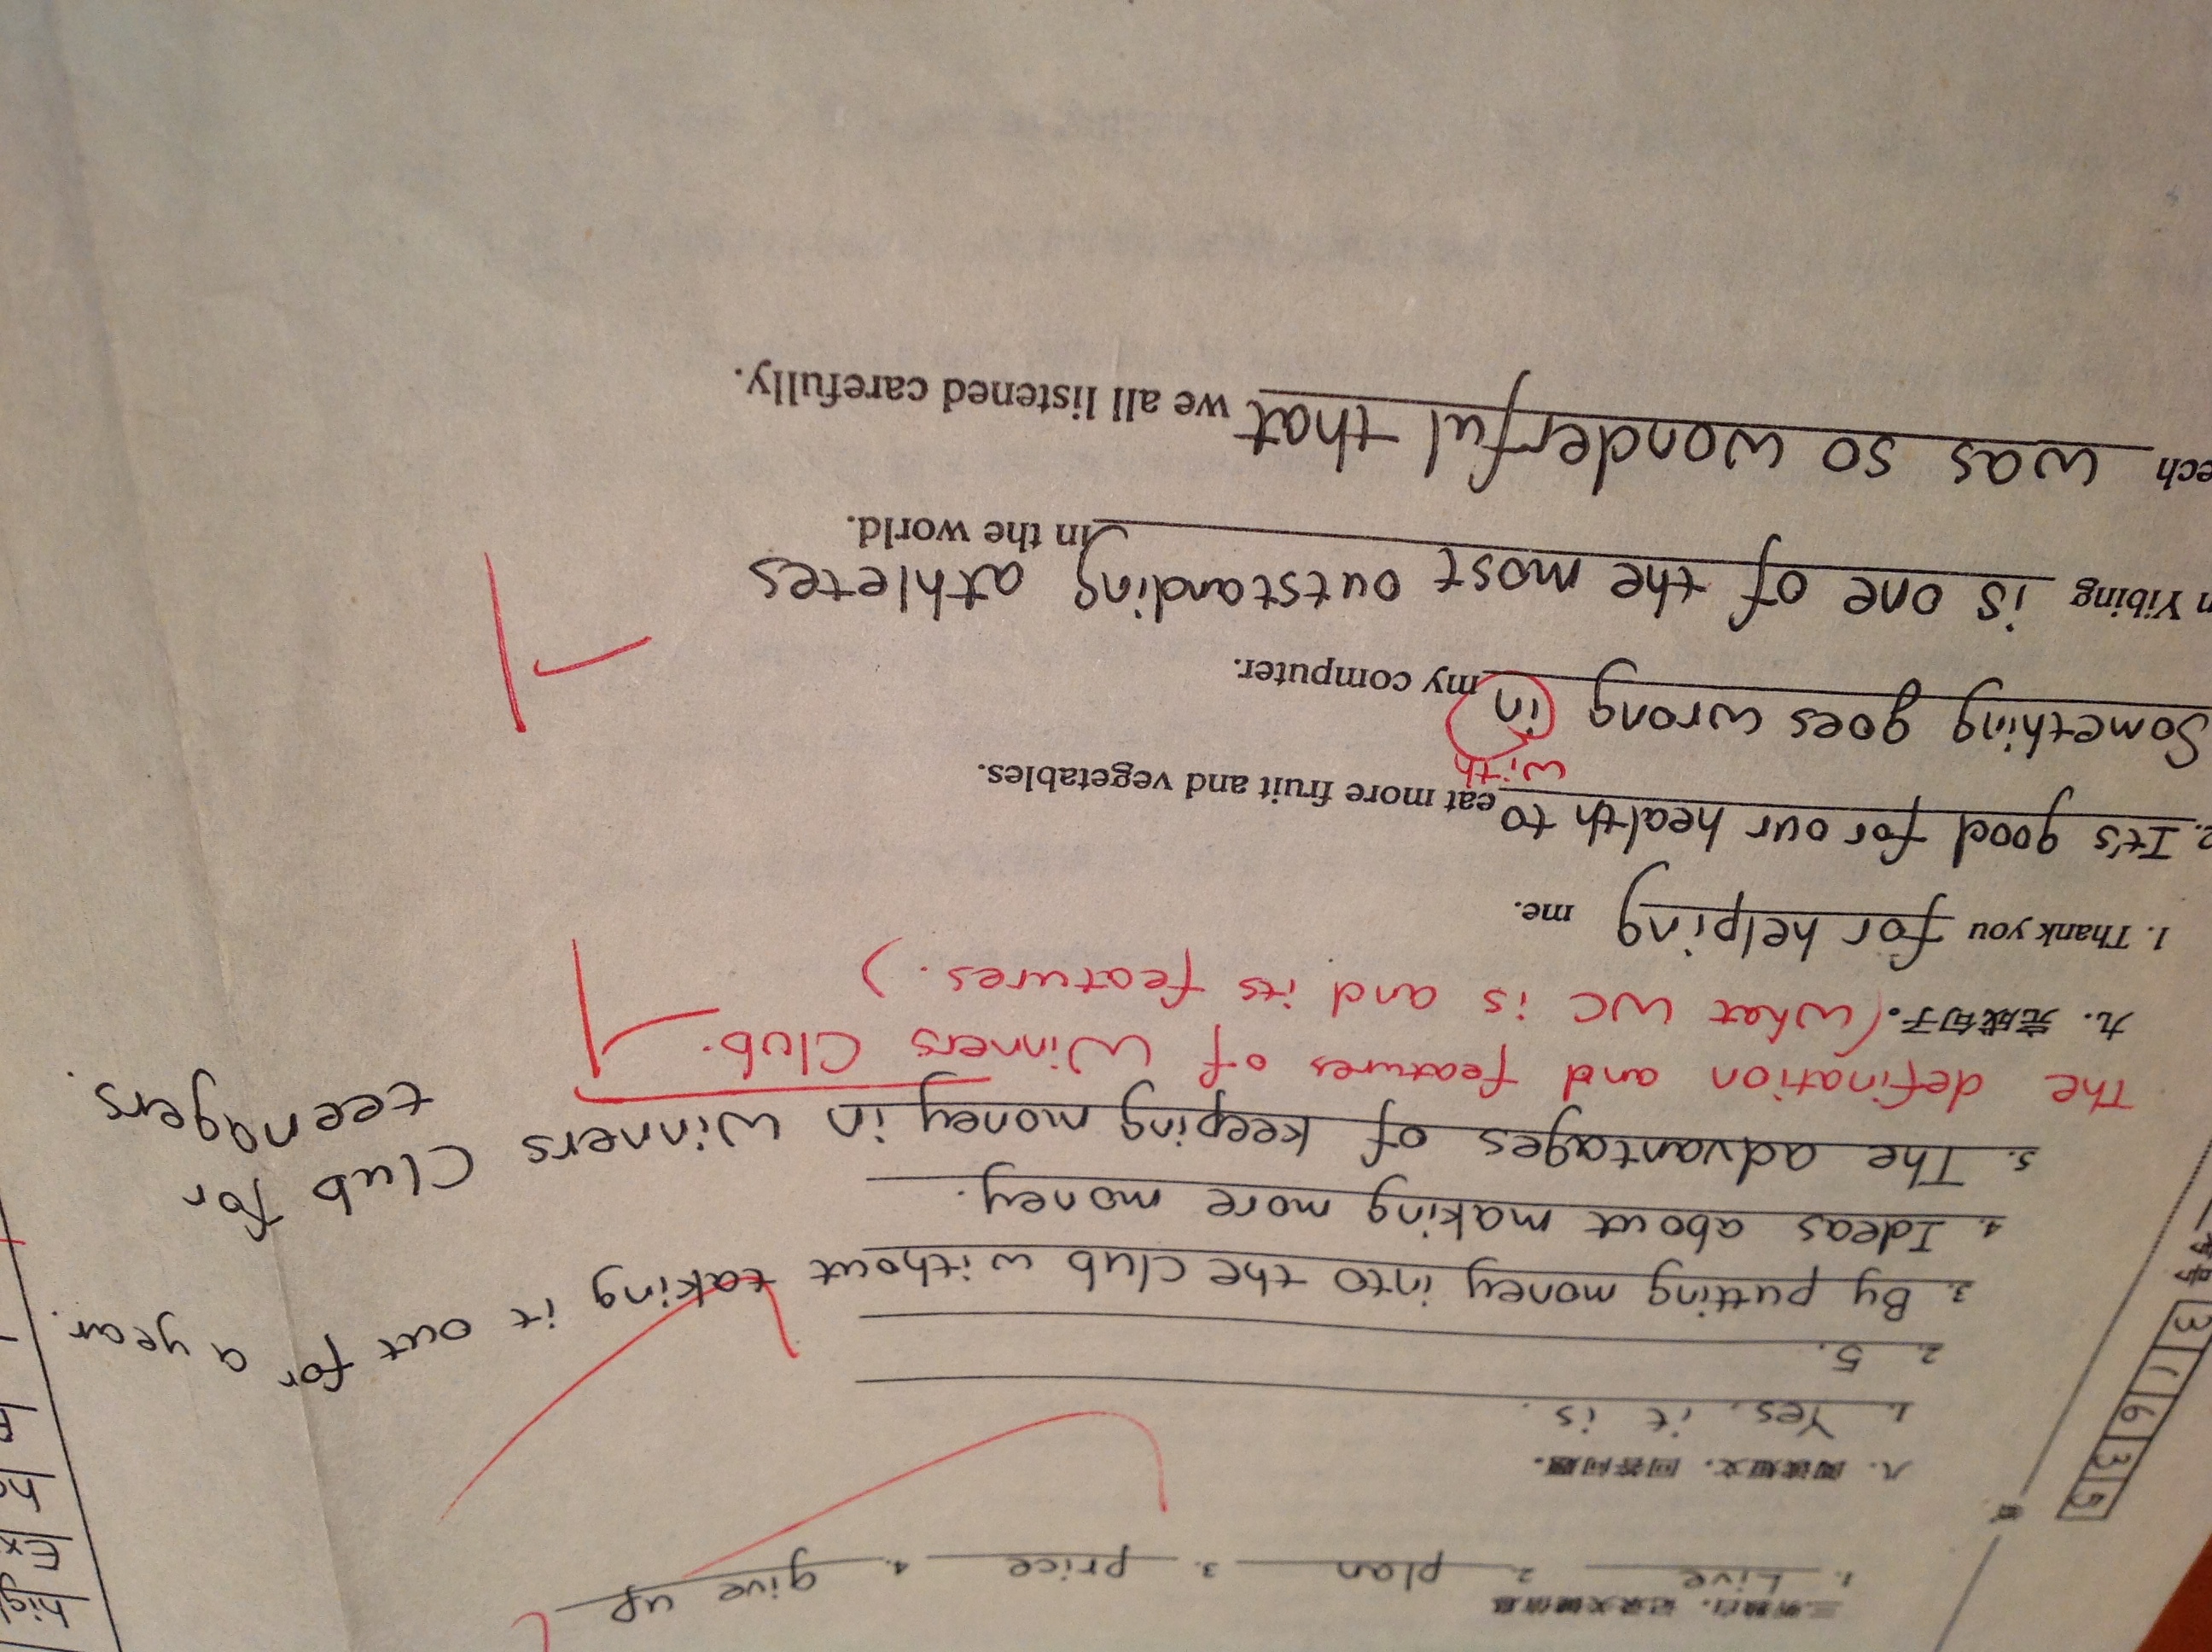 三.听独白，记录关键信息
1. Live 2. plan 3. price 4. give up
八. 阅读短文，回答问题。
1. Yes, it is.
2. 5.
3. By putting money into the club without taking it out for a year.
4. Ideas about making more money.
5. The advantages of keeping money in Winners Club for
teenagers.
The defination and features of Winners Club. -1
九. 完成句子。(What WC is and its features.)
1. Thank you for helping me.
2. It's good for our health to eat more fruit and vegetables.
with
Something goes wrong in my computer. -1
n Yibing is one of the most outstanding athletes
in the world.
ech was so wonderful that we all listened carefully.
3 1 6 3 5
考号
hig
Ex